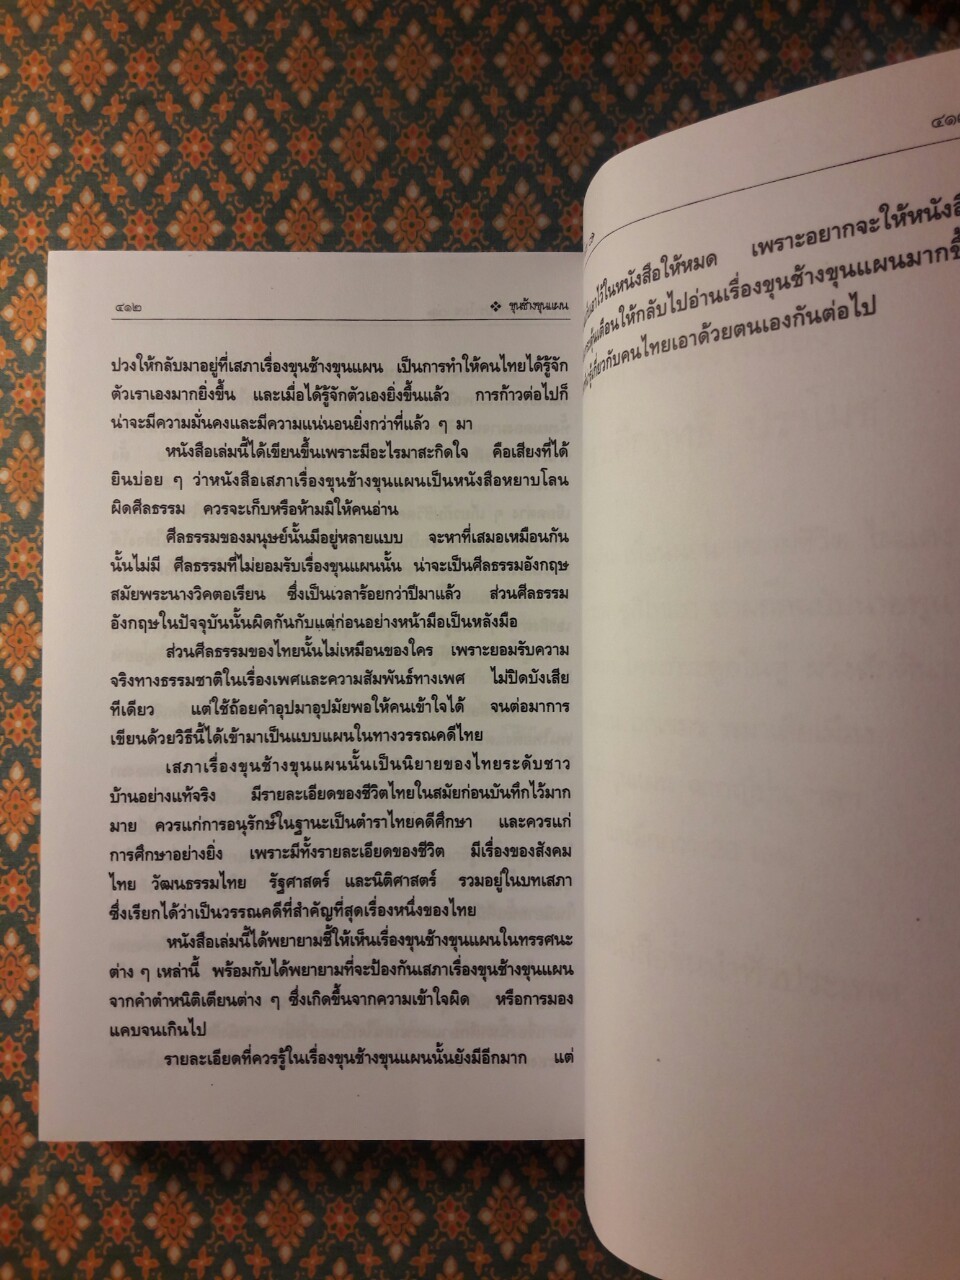 ๔๑๒ ❖ ขุนช้างขุนแผน
ปวงให้กลับมาอยู่ที่เสภาเรื่องขุนช้างขุนแผน เป็นการทำให้คนไทยได้รู้จัก
ตัวเราเองมากยิ่งขึ้น และเมื่อได้รู้จักตัวเองยิ่งขึ้นแล้ว การก้าวต่อไปก็
น่าจะมีความมั่นคงและมีความแน่นอนยิ่งกว่าที่แล้ว ๆ มา
หนังสือเล่มนี้ได้เขียนขึ้นเพราะมีอะไรมาสะกิดใจ คือเสียงที่ได้
ยินบ่อย ๆ ว่าหนังสือเสภาเรื่องขุนช้างขุนแผนเป็นหนังสือหยาบโลน
ผิดศีลธรรม ควรจะเก็บหรือห้ามมิให้คนอ่าน
ศีลธรรมของมนุษย์นั้นมีอยู่หลายแบบ จะหาที่เสมอเหมือนกัน
นั้นไม่มี ศีลธรรมที่ไม่ยอมรับเรื่องขุนแผนนั้น น่าจะเป็นศีลธรรมอังกฤษ
สมัยพระนางวิคตอเรียน ซึ่งเป็นเวลาร้อยกว่าปีมาแล้ว ส่วนศีลธรรม
อังกฤษในปัจจุบันนั้นผิดกันกับแต่ก่อนอย่างหน้ามือเป็นหลังมือ
ส่วนศีลธรรมของไทยนั้นไม่เหมือนของใคร เพราะยอมรับความ
จริงทางธรรมชาติในเรื่องเพศและความสัมพันธ์ทางเพศ ไม่ปิดบังเสีย
ทีเดียว แต่ใช้ถ้อยคำอุปมาอุปมัยพอให้คนเข้าใจได้ จนต่อมาการ
เขียนด้วยวิธีนี้ได้เข้ามาเป็นแบบแผนในทางวรรณคดีไทย
เสภาเรื่องขุนช้างขุนแผนนั้นเป็นนิยายของไทยระดับชาว
บ้านอย่างแท้จริง มีรายละเอียดของชีวิตไทยในสมัยก่อนบันทึกไว้มาก
มาย ควรแก่การอนุรักษ์ในฐานะเป็นตำราไทยคดีศึกษา และควรแก่
การศึกษาอย่างยิ่ง เพราะมีทั้งรายละเอียดของชีวิต มีเรื่องของสังคม
ไทย วัฒนธรรมไทย รัฐศาสตร์ และนิติศาสตร์ รวมอยู่ในบทเสภา
ซึ่งเรียกได้ว่าเป็นวรรณคดีที่สำคัญที่สุดเรื่องหนึ่งของไทย
หนังสือเล่มนี้ได้พยายามชี้ให้เห็นเรื่องขุนช้างขุนแผนในทรรศนะ
ต่าง ๆ เหล่านี้ พร้อมกับได้พยายามที่จะป้องกันเสภาเรื่องขุนช้างขุนแผน
จากคำตำหนิติเตียนต่าง ๆ ซึ่งเกิดขึ้นจากความเข้าใจผิด หรือการมอง
แคบจนเกินไป
รายละเอียดที่ควรรู้ในเรื่องขุนช้างขุนแผนนั้นยังมีอีกมาก แต่
ไว้ในหนังสือให้หมด เพราะอยากจะให้
เตือนให้กลับไปอ่านเรื่องขุนช้างขุนแผน
เกี่ยวกับคนไทยเอาด้วยตนเองกันต่อไป